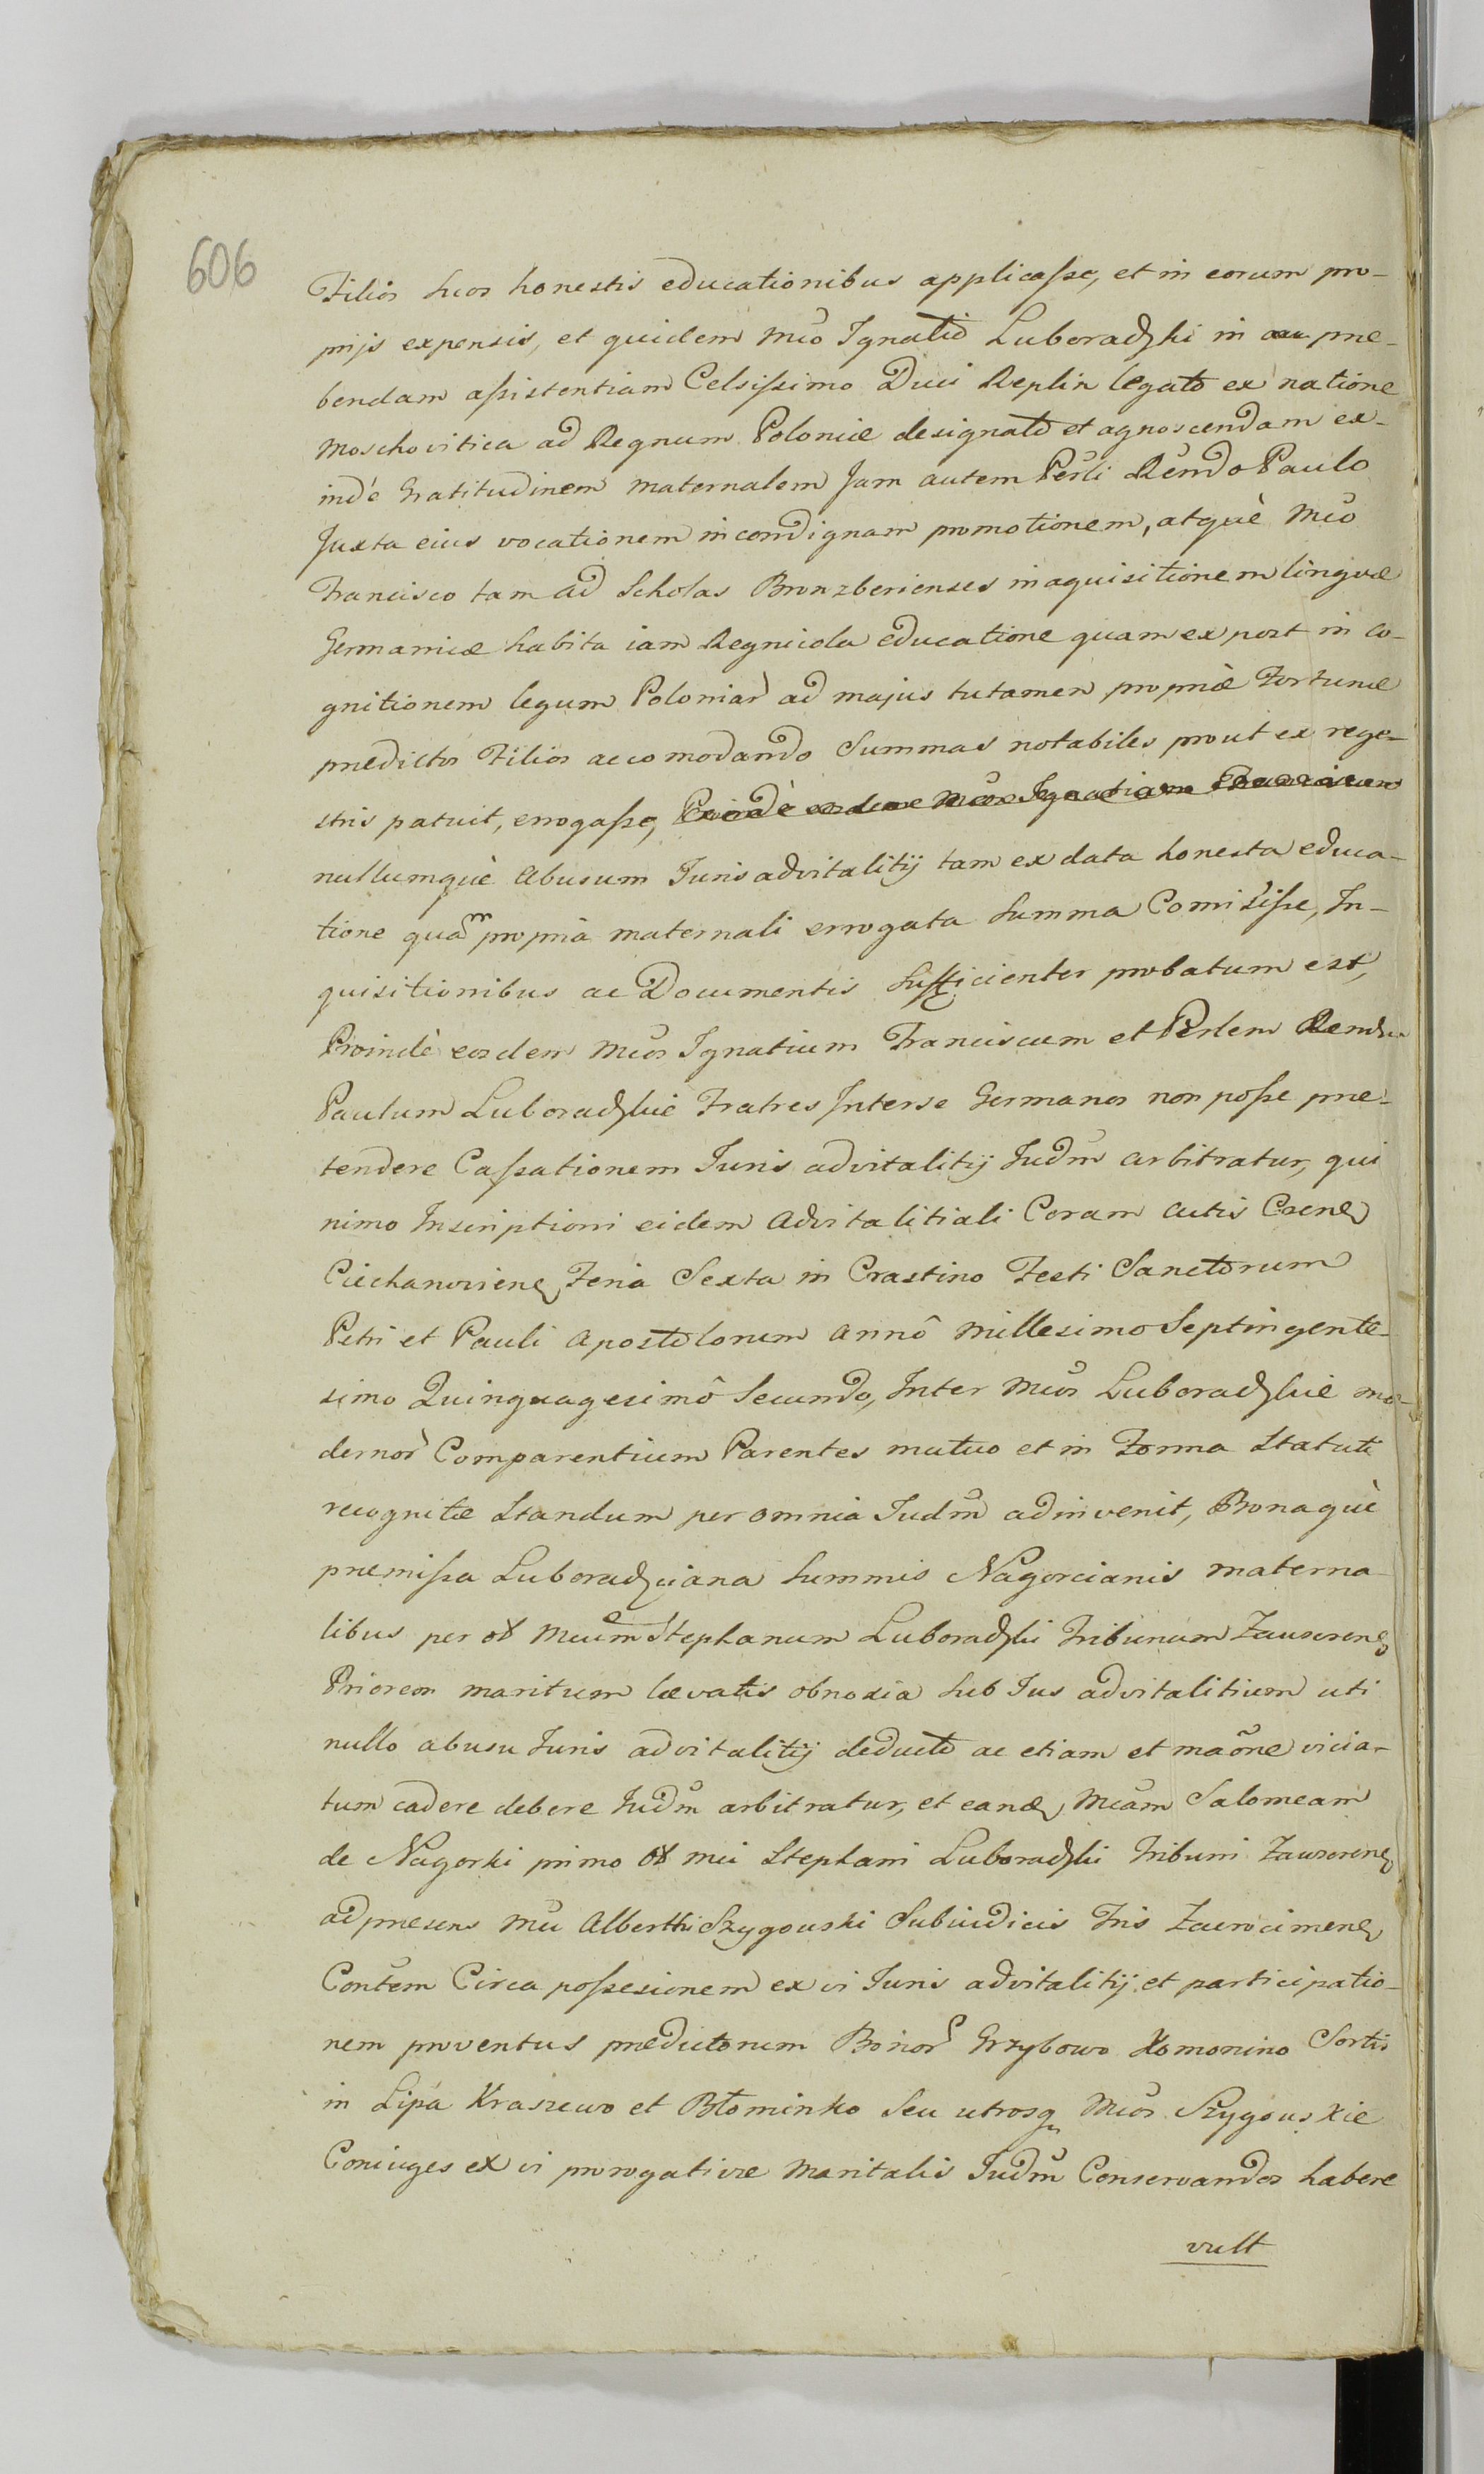 606
Filios suos honestis educationibus applicasse, et in eorum pro-
prijs expensis, et quidem Mco Ignatio Luboradzki in prae-
bendam assistentiam Celsissimo Duci Replin legato ex natione
Moschovitica ad Regnum Poloniæ designato et agnoscendam ex-
indè Gratitudinem maternalem Jam autem Perli Rendo Paulo
Juxta eius vocationem in condignam promotionem, atquè Mco
Francisco tam ad Scholas Brunzberienses in aquisitionem linguæ
Germanicæ habita iam Regnicola educatione quam ex post in co-
gnitionem legum Poloniar ad majus tutamen propriæ Fortunæ
prædictos Filios accomodando Summas notabiles prout ex rege-
stris patuit, erogasse,
nullumquè Abusum Juris advitalitij tam ex data honesta educa-
tione quam propria maternali errogata summa Comisisse, In-
quisitionibus ac Documentis Sufficienter probatum est,
Proindè eosdem Mcos Ignatium Franciscum et Perlem Rendum
Paulum Luboradzkie Fratres Interse Germanos non posse præ-
tendere Cassationem Juris advitalitij Judm arbitratur, qui
nimo Inscriptioni eidem Advitalitiali Coram Actis Crens
Ciechanoviens Feria Sexta in Crastino Festi Sanctorum
Petri et Pauli Apostolorum annô Millesimo Septingente-
simo Quinquagesimô Secundo, Inter Mcos Luboradzkie mo-
dernor Comparentium Parentes mutuo et in Forma Statuti
recognitæ Standum per omnia Judm adinvenit, Bonaquè
præmissa Luboradzciana summis Nagorcianis materna-
libus per ol Mcum Stephanum Luboradzki Tribunum Zawscrens
Priorem maritum lævatis obnoxia sub Jus advitalitium uti
nullo abusu Juris advitalitij deducto ac etiam et maône vicia-
tum cadere debere Judm arbitratur, et eand Mcam Salomeam
de Nagorki primo ol Mci Stephani Luboradzki Tribuni Zawscrens
ad præsens Mci Alberthi Szygowski Subiudicis Tris Zacrocimens
Contem Circa possesionem ex vi Juris advitalitij et participatio-
nem proventus prædictorum Bonor Grzybowo Homonino Sortis
in Lipa Kraszewo et Błominko Seu utrosq Mcos Szygowskie
Coniuges ex vi prorogativæ Maritalis Judm Conservandos habere
vult